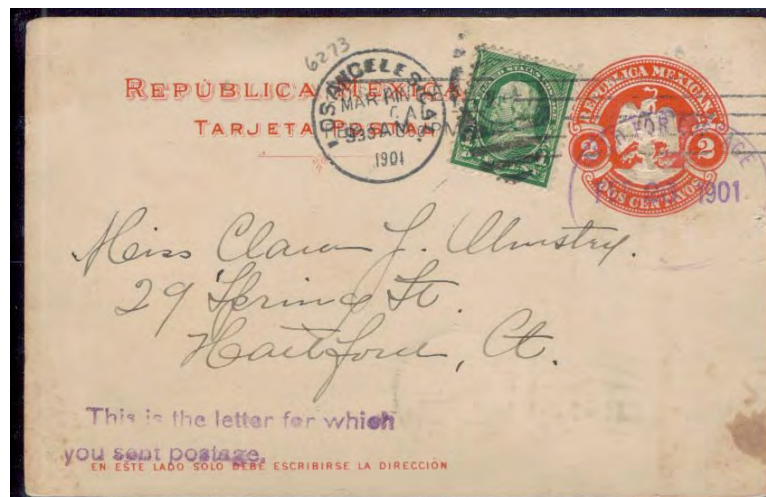 6273
REPUBLICA MEXICANA
TARJETA POSTAL
LOS ANGELES, CAL.
MAR
930 AM
1901
REPUBLICA MEXICANA
2 2
DOS CENTAVOS
1901
Miss Clara J.
29 Spring St.
Hartford, Ct.
This is the letter for which
you sent postage.
EN ESTE LADO SOLO DEBE ESCRIBIRSE LA DIRECCION